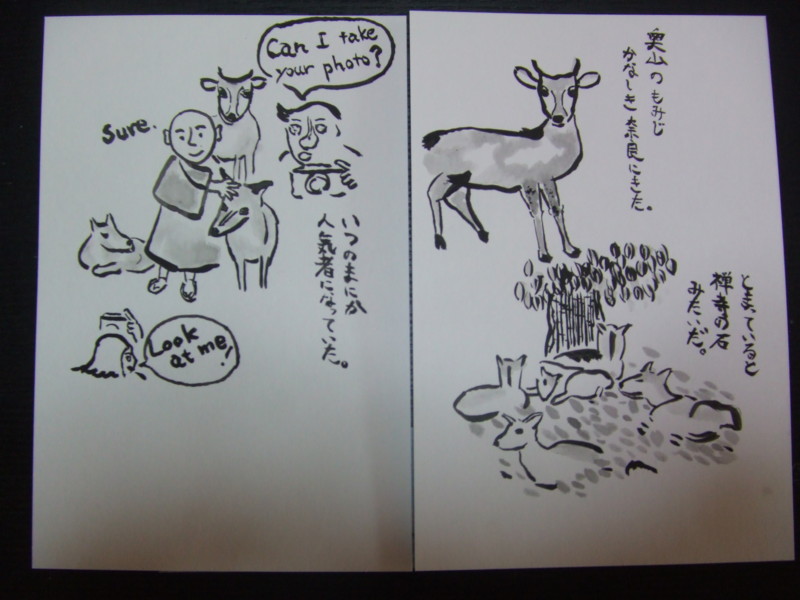 奥山のもみじ
かなしき奈良にきた。
とまっていると
禅寺の石
みたいだ。
Can I take
your photo?
Sure.
いつのまにか
人気者になっていた。
Look
at me!